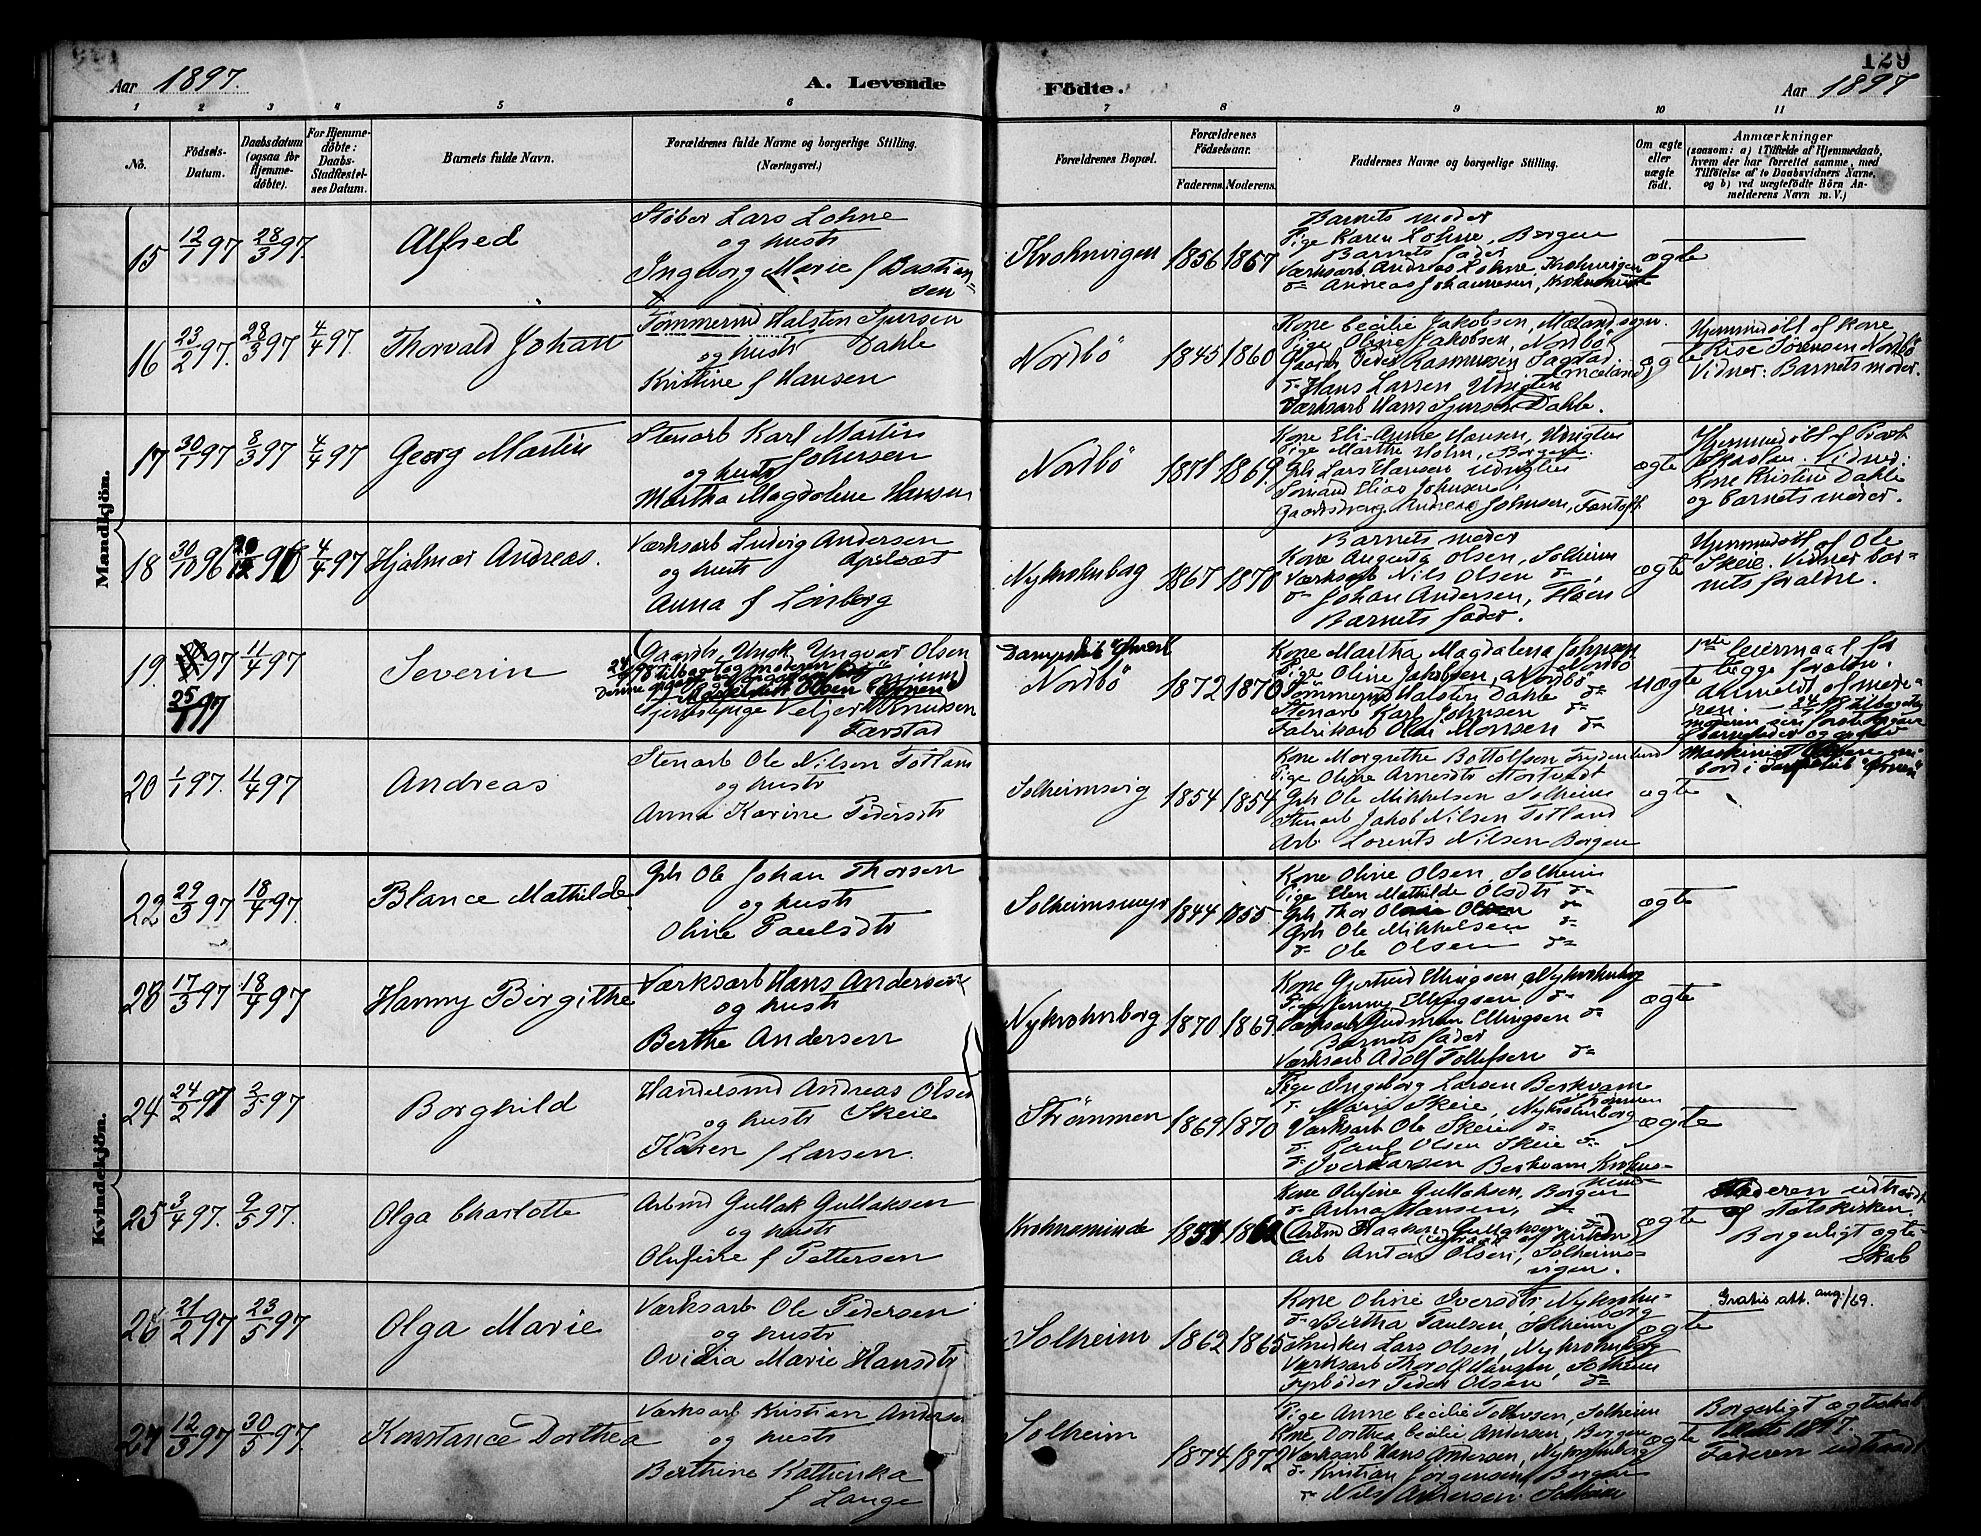 129
Aar 1897. A. Levende Fødte. Aar 1897
1 2 3 4 5 6 7 8 9 10 11
No.
Fødsels-Datum.
Daabsdatum (ogsaa for Hjemmedøbte).
For Hjemmedøbte: Daabs-Stadfæstelses Datum.
Barnets fulde Navn.
Forældrenes fulde Navne og borgerlige Stilling. (Næringsvei.)
Forældrenes Bopæl.
Forældrenes Fødselsaar.
Faderens. Moderens.
Faddernes Navne og borgerlige Stilling.
Om ægte eller uægte født.
Anmærkninger
(saasom: a) i Tilfælde af Hjemmedaab, hvem der har forrettet samme, med Tilføielse af to Daabsvidners Navne. og b) ved uægtefødte Børn Anmelderens Navn m. V.)
Mandkjön.
15 12/1 97 28/3 97.
Alfred
Støber Lars Lohne
og hustr
Ingeborg Marie f Bastian=
sen
Krohnvigen 1856 1857
Barnets moder
Pige Karen Lohne, Bergen
Barnets fader
Værksarb. Andreas Lohne, Krohnvigen
d= Andreas Johannesen,
ægte
16 23/2 97. 28/3 97 4/4 97.
Thorvald Johan
Tømmermd Halsten Sjursen
og hustr Dahle
Kristine f Hansen
Nordbö 1845 1860
Kone Cecilie Jakobsen, Mæland sogn.
Pige Oline Jakobsen, Nordbö
Gaardbr Peder Rasmussen Sagstad
d= Hans Larsen Udvigten
Værksarb Hans Sjursen Dahle.
ægte
Hjemmedøbt af Kone
Sørensen Nordbö
Vidner: Barnets moder.
17 30/1 97 8/3 97 4/4 97
Georg Martin
Stenarb Karl Martin
og hustr Johnsen
Martha Magdalene Hansen
Nordbö 1871 1869.
Kone Eli-Anne Hansen, Udvigten
Pige Marthe Holm, Bergen
Grb Lars Hansen Udvigten
Sømand Elias Johnsen,
Gaardsdreng Andreas Johnsen, Fantoft
ægte
Hjemmedøbt af
Vidner:
Kone Kristine Dahle
og barnets moder.
18 30/10 96 4/4 97
Hjalmar Andreas.
Værksarb Ludvig Andersen
og hustr
Anna f Lönborg
Nykrohnborg 1867 1870
Barnets moder
Kone Augusta Olsen, Solheim
Værksarb Nils Olsen d=
d= Johan Andersen,
Barnets fader.
ægte
Hjemmedøbt af Ole
Skeie. Vidner bar=
nets forældre.
19. 97 11/4 97
25/1 97
Severin
Ungk. Ingvar Olsen
Tjenestepige
Færstad
Nordbö 1872 1870
Kone Martha Magdalena Johnsen
Pige Oline Jakobsen, Nordbö
Tømmermd Halsten Dahle d=
Stenarb Karl Johnsen d=
Fabrikarb Ole Monsen d=
uægte
1ste leiermaal for
begge forældre.
Anmeldt af mode=
ren.
20 1/1 97. 4/4 97
Andreas
Stenarb Ole Nilsen Totland
og hustr
Anna Karine Pedersdtr
Solheimsvig 1854 1854
Kone Margrethe Bottolfsen Frydenlund
Pige Oline Arnesdtr
Grb Ole Mikkelsen Solheim
Stenarb Jakob Nilsen Totland
Arb Lorents Nilsen Bergen
ægte
Kvindekjön.
22 29/3 97 18/4 97.
Blance Mathilde
Grb Ole Johan Thorsen
og hustr
Oline Paulsdtr
Solheimsmyr 1844 1855
Kone Oline Olsen, Solheim
Pige Elen Mathilde Olsdtr d=
Grb Thor Olsen d=
Grb Ole Mikkelsen d=
d= Ole Olsen d=
ægte
23 17/3 97 18/4 97
Hanny Birgithe
Værksarb Hans Andersen
og hustr
Berthe Andersen
Nykrohnborg 1870 1869.
Kone Gjertrud Ellingsen, Nykrohnborg
Pige Jenny Ellingsen d=
Værksarb Gudman Ellingsen d=
Barnets fader
Værksarb Adolf Tollefsen d=
ægte
24 24/2 97 2/3 97
Borghild
Handelsmd Andreas Olsen
og hustr Skeie
Karen f Larsen.
Strømmen 1869 1870
Pige Ingeborg Larsen Berkvam
Strømmen
d= Marie Skeie, Nykrohnborg
Værksarb Ole Skeie d=
d= Paul Olsen Skeie d=
d= Iver Larsen Berkvam Krohns=
minde
ægte
25 3/4 97. 9/5 97.
Olga Charlotte
Arbmd Gullak Gullaksen
og hustr
Olufine f Pettersen
Krohnsminde
Kone Olufine Gullaksen, Bergen
d= Anna Hansen, d=
(Arbmd Haaken Gullaksen d=
(udtraadt af kirken)
Arb Anton Olsen, Solheims=
vigen.
ægte
Faderen udtraadt
af statskirken.
Borgerligt ægte=
skab
26 21/2 97 23/5 97
Olga Marie
Værksarb Ole Pedersen
og hustr
Ovidia Marie Hansdtr
Solheim 1862 1865
Kone Oline Iversdtr Nykrohn=
borg
d= Bertha Paulsen, Solheim
Snedker Lars Olsen, Nykrohnborg
Værksarb Thorolf Hansen, Solheim
Fyrbøder Peder Olsen d=
ægte
Gratis att. aug./69.
27 12/3 97 30/5 97.
Konstance Dorthea
Værksarb Kristian Andersen
og hustr
Berthine Kathinka
f Lange
Solheim 1874 1872
Pige Anne Cecilie Tollefsen, Solheim
Kone Dorthea Cecilie Andersen, Bergen
Værksarb Hans Andersen, Nykrohnborg
d= Kristian Jørgensen, Bergen
d= Nils Andersen. Solheim
ægte
Borgerligt ægteskab
1897.
Faderen udtraadt